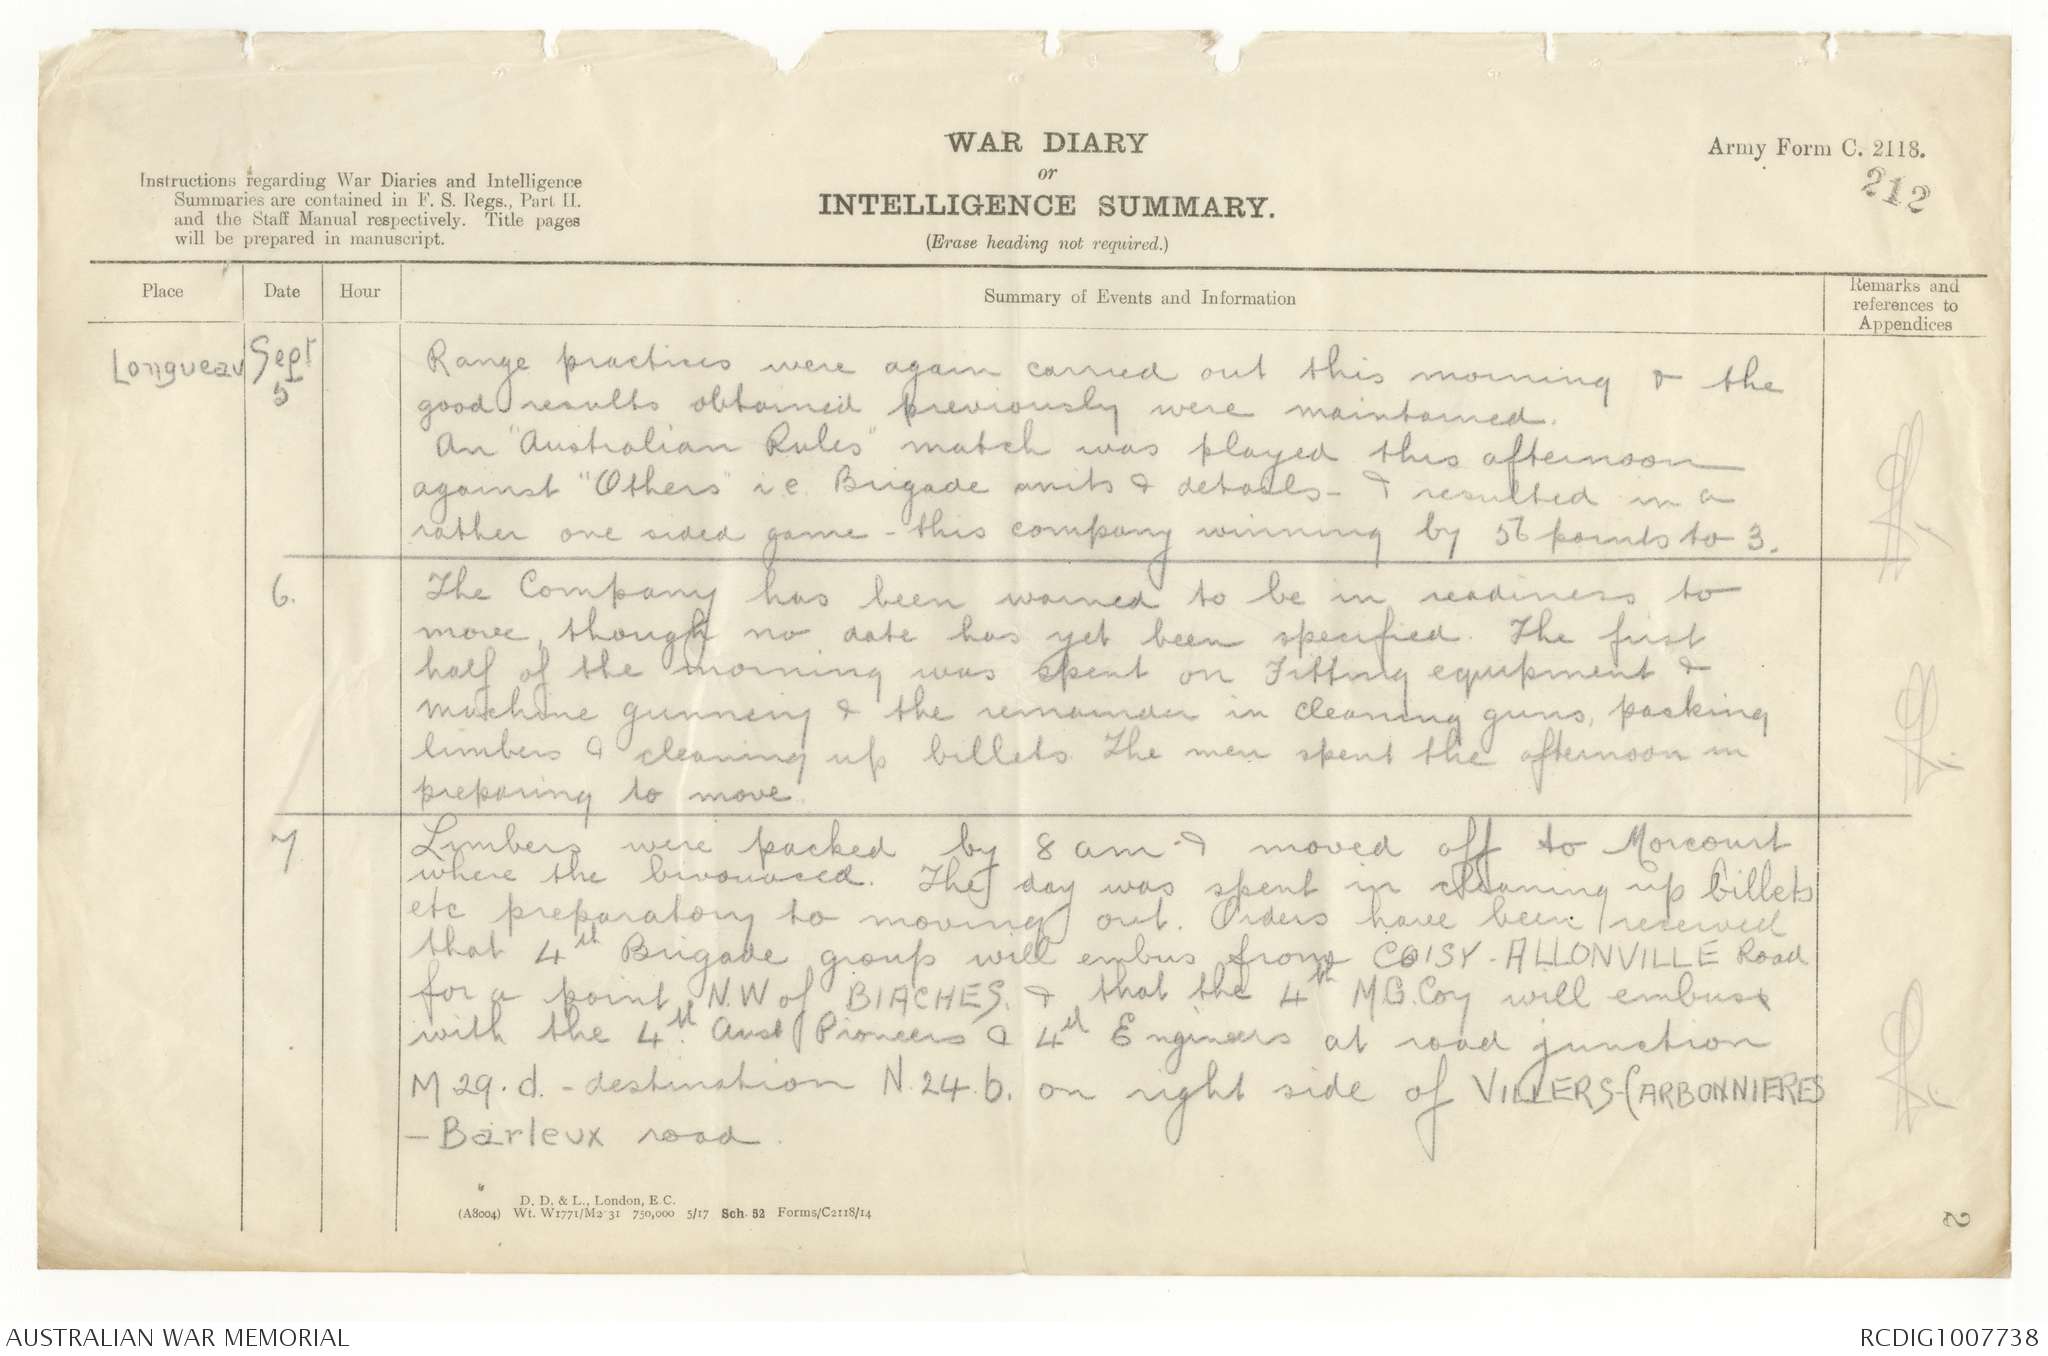 WAR DIARY
or
INTELLIGENCE SUMMARY.
(Erase heading not required.)
Army Form C. 2118.
212
Instructions regarding War Diaries and Intelligence
Summaries are contained in F. S. Regs., Part II.
and the Staff Manual respectively. Title pages
will be prepared in manuscript.
Place Date Hour Summary of Events and Information Remarks and
references to
Appendices
Longueau Sept
5
Range practices were again carried out this morning & the
good results obtained previously were maintained.
An "Australian Rules" match was played this afternoon
against "Others" i.e. Brigade units & details - & resulted in a
rather one sided game - this company winning by 56 points to 3.
6. The Company has been warned to be in readiness to
move, though no date has yet been specified. The first
half of the morning was spent on Fitting equipment &
machine gunnery & the remainder in cleaning guns, packing
limbers & cleaning up billets. The men spent the afternoon in
preparing to move.
7. Limbers were packed by 8 am & moved off to Morcourt
where the bivouaced. The day was spent in cleaning up billets
etc preparatory to moving out. Orders have been received
that 4th Brigade group will embus from COISY - ALLONVILLE Road
for a point N.W of BIACHES. & that the 4th M.G. Coy will embus
with the 4th Aust Pioneers & 4th Engineers at road junction
M 29. d. - destination N. 24. b. on right side of VILLERS-CARBONNIERES
- Barleux road.
D. D. & L., London, E.C.
(A8004) Wt. W1771/M2 31 750,000 5/17 Sch. 52 Forms/C2118/14
2
AUSTRALIAN WAR MEMORIAL
RCDIG1007738